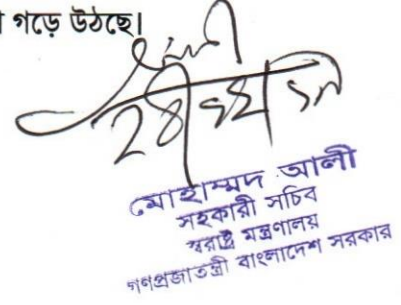 গড়ে উঠছে।
মোহাম্মদ আলী
সহকারী সচিব
স্বরাষ্ট্র মন্ত্রণালয়
গণপ্রজাতন্ত্রী বাংলাদেশ সরকার